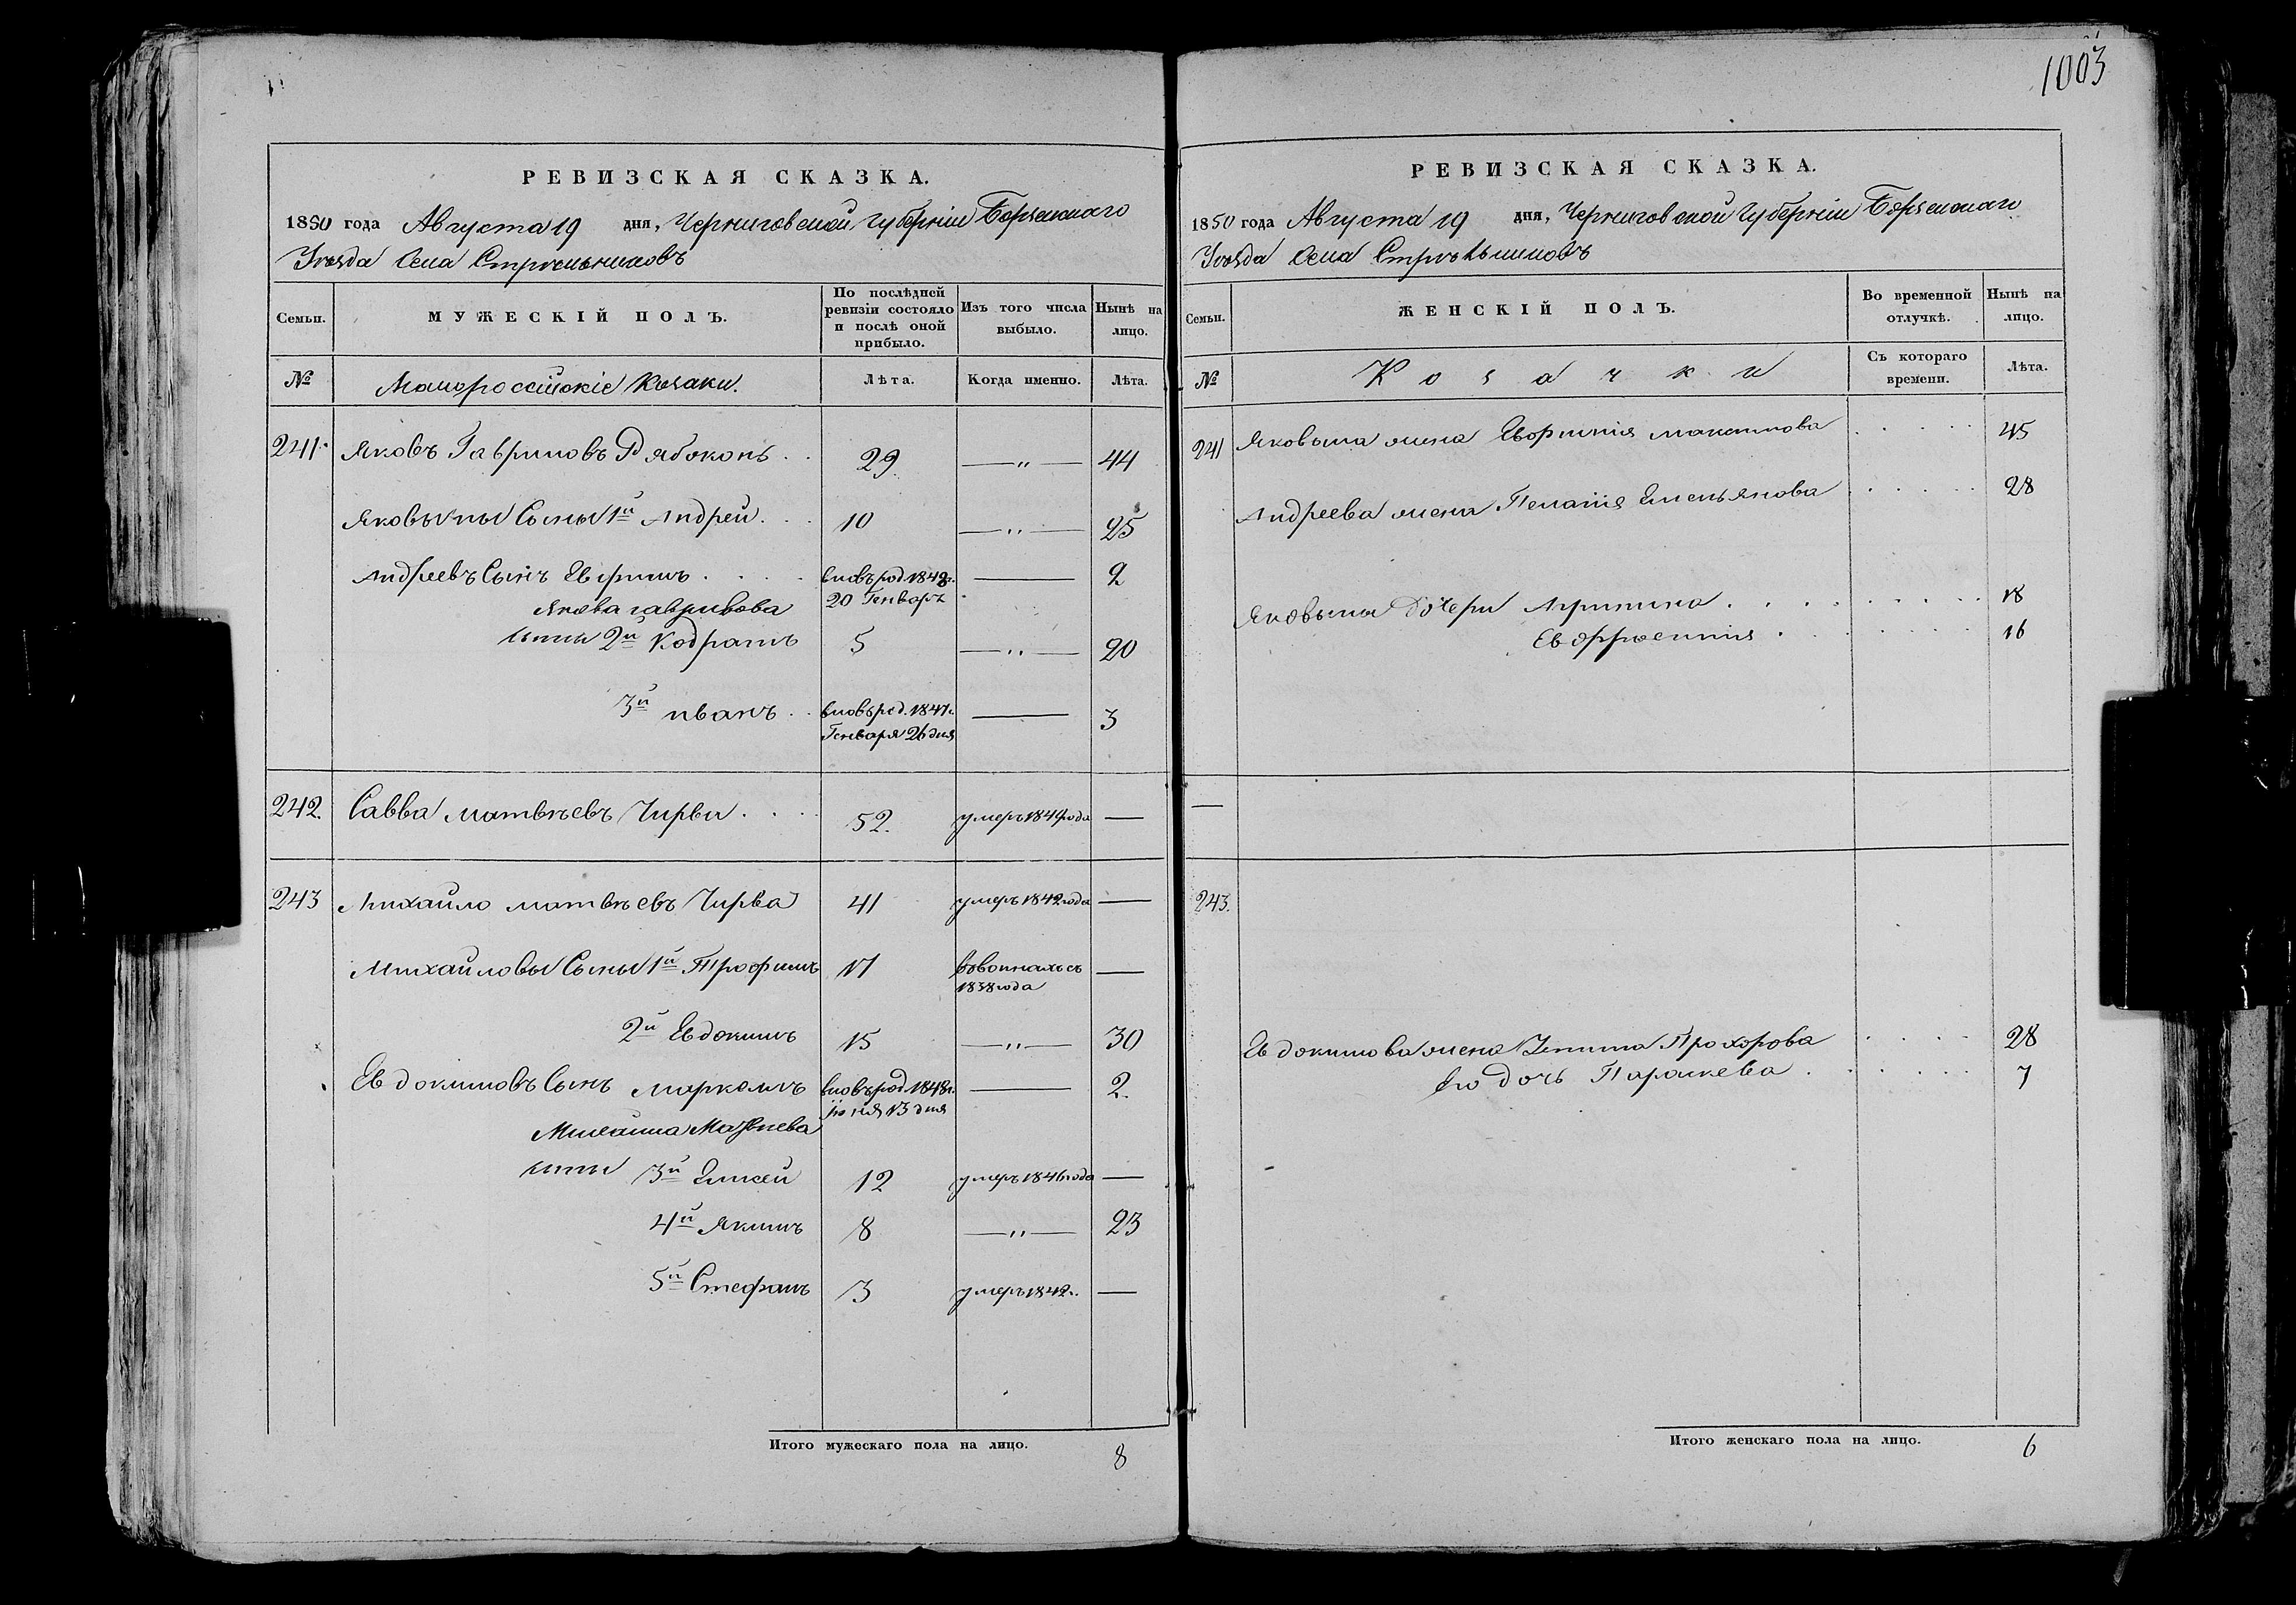 1003
РЕВИЗСКАЯ СКАЗКА.
1850 года Августа 19 дня, Черниговской губерніи Борзенскаго
Уѣзда Села Стрѣльниковъ
Семьи.
МУЖЕСКІЙ ПОЛЪ.
По послѣдней ревизіи состояло и послѣ оной прибыло.
Изъ того числа выбыло.
Нынѣ на лицо.
№
Малороссійскіе Козаки.
Лѣта.
Когда именно.
Лѣта.
241. Яковъ Гавриловъ Рябоконь . . 29. —"— 44
Яковы Сыны 1й Андрей . . 10 —"— 25
Андреевъ Сынъ . . . . вновь род. 1848г. — 2
Якова Гаврилова 20 Генваря
сыны 2й Кодратъ 5 —"— 20
3й иванъ . . вновь род. 1847г. — 3
Генваря 26 дня
242. Савва матвѣевъ Чирва . . . . 52. умеръ 1849 года —
243 Михайло матвѣевъ Чирва 41 умеръ 1842 года —
Михайловы Сыны 1й Трофимъ 17 —
1838 года
2й Евдокимъ 15 —"— 30
Евдокимовъ Сынъ вновь род. 1848г. — 2.
іюня 13 дня
Михаила Матвѣева
сыны 3й Елисей 12 умеръ 1846 года —
4й Якимъ 8 —"— 23
5й Стефанъ 3 умеръ 1842г. —
Итого мужескаго пола на лицо. 8
РЕВИЗСКАЯ СКАЗКА.
1850 года Августа 19 дня, Черниговской губерніи Борзенскаго
Уѣзда Села Стрѣльниковъ
Семьи.
ЖЕНСКІЙ ПОЛЪ.
Во временной отлучкѣ.
Нынѣ на лицо.
№
Козачки
Съ котораго времени.
Лѣта.
241 Яковьша жена максимова . . . . . 45
Андреева жена Пелагія Емельянова . . . . . 28
Яковьша дочери . . . . . . . . . . 18
Евфросинія . . . . . . . 16
—
243.
Евдокимова жена Прохорова . . . . 28
Его дочь Параскева . . . . . . 7
Итого женскаго пола на лицо. 6